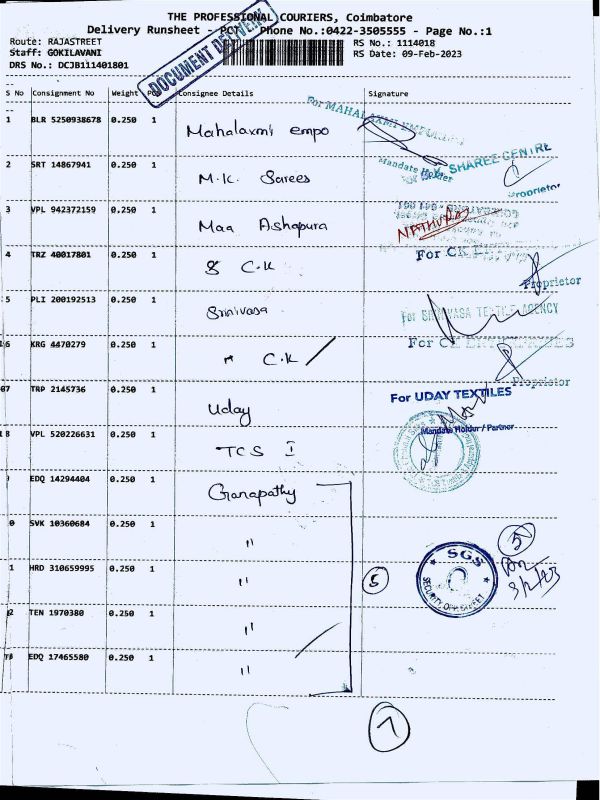 THE PROFESSIONAL COURIERS, Coimbatore
Delivery Runsheet - PCT Phone No.:0422-3505555 - Page No.:1
Route: RAJASTREET
Staff: GOKILAVANI
DRS No.: DCJB111401801
RS No.: 1114018
RS Date: 09-Feb-2023
1114018
DOCUMENT DELIVERY
S No Consignment No Weight Consignee Details Signature
1 BLR 5250938678 0.250 1 Mahalaxmi empo For MAHALAXMI EMPORIUM
Mandate Holder
2 SRT 14867941 0.250 1 M.K. Sarees SHAREE CENTRE
Proprietor
3 VPL 942372159 0.250 1 Maa Ashapura
4 TRZ 40017801 0.250 1 C.K For CK
Proprietor
5 PLI 200192513 0.250 1 Srinivasa For SRINIVASA TEXTILE AGENCY
6 KRG 4470279 0.250 1 C.K For CK ENTERPRISES
Proprietor
07 TRP 2145736 0.250 1 Uday For UDAY TEXTILES
Mandate Holder / Partner
8 VPL 520226631 0.250 1 TCS I
EDQ 14294404 0.250 1 Ganapathy
0 SVK 10360684 0.250 1 "
1 HRD 310659995 0.250 1 " 5 SGS 5
2 TEN 1970380 0.250 1 "
EDQ 17465580 0.250 1 "
7